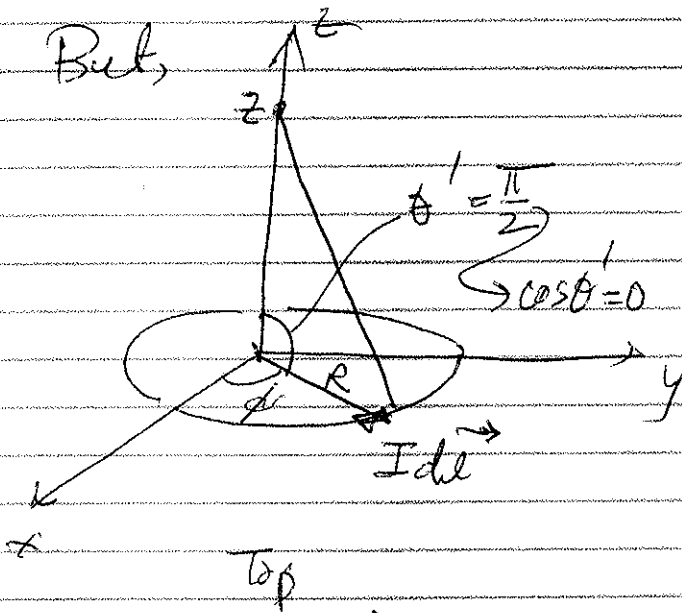 But,
z
z
θ' = π/2
→ cosθ' = 0
R
y
φ
I dl⃗
x
Top